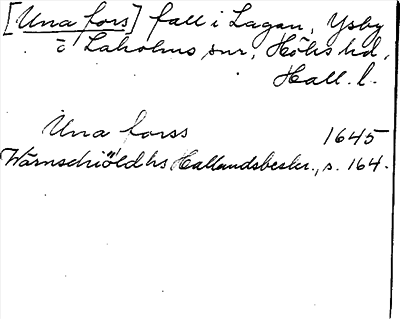 [Una fors] fall i Lagan, Ysby
o. Laholms snr, Höks hd,
Hall. l.
Una forss 1645
Wärnschiöldhs Hallandsbeskr., s. 164.